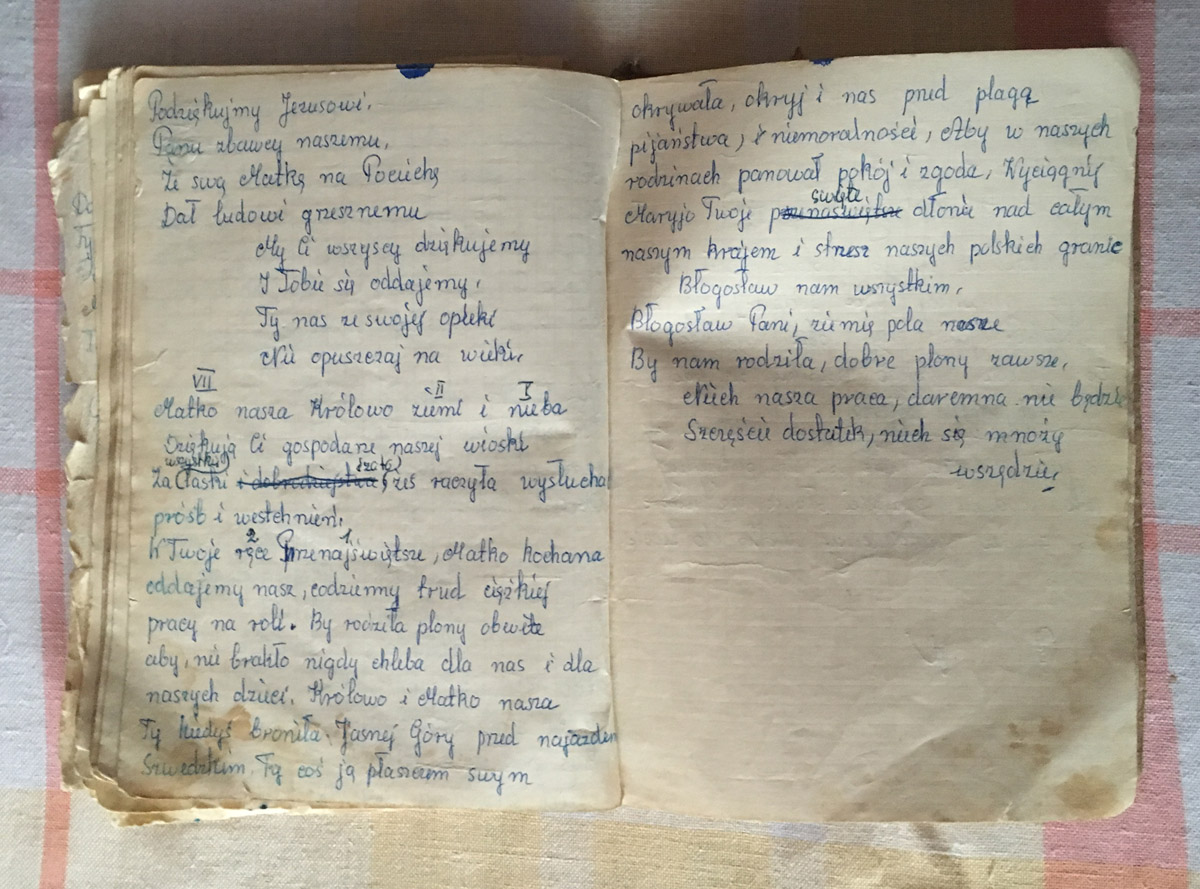 Podziękujmy Jezusowi,
Panu zbawcy naszemu,
Że swą Matkę na Pociechę
Dał ludowi grzesznemu
My Ci wszyscy dziękujemy
I Tobie się oddajemy,
Ty nas ze swojej opieki
Nie opuszczaj na wieki,
VII II I
Matko nasza Królowo ziemi i nieba
Dziękują Ci gospodarze naszej wioski
wszystkie
Za łaski i dobrodziejstwa, żeś raczyła wysłucha
próśb i westchnień,
2 1
W Twoje ręce Przenajświętsze, Matko kochana
oddajemy nasz, codzienny trud ciężkiej
pracy na roli. By rodziła plony obwite
aby, nie brakło nigdy chleba dla nas i dla
naszych dzieci. Królowo i Matko nasza
Ty kiedyś broniła Jasnej Góry przed najazdem
Szwedzkim. Tą coś ją płaszczem swym
okrywała, okryj i nas przed plagą
pijaństwa, i niemoralności, Aby w naszych
rodzinach panował pokój i zgoda, Wyciągnij
swięte
Maryjo Twoje przenaswiętsze dłonie nad całym
naszym krajem i strzesz naszych polskich granic
Błogosław nam wszystkim,
Błogosław Pani, ziemię pola nasze
By nam rodziła, dobre plony zawsze,
Niech nasza praca, daremna nie będzie
Szczęście dostatek, niech się mnoży
wszędzie,